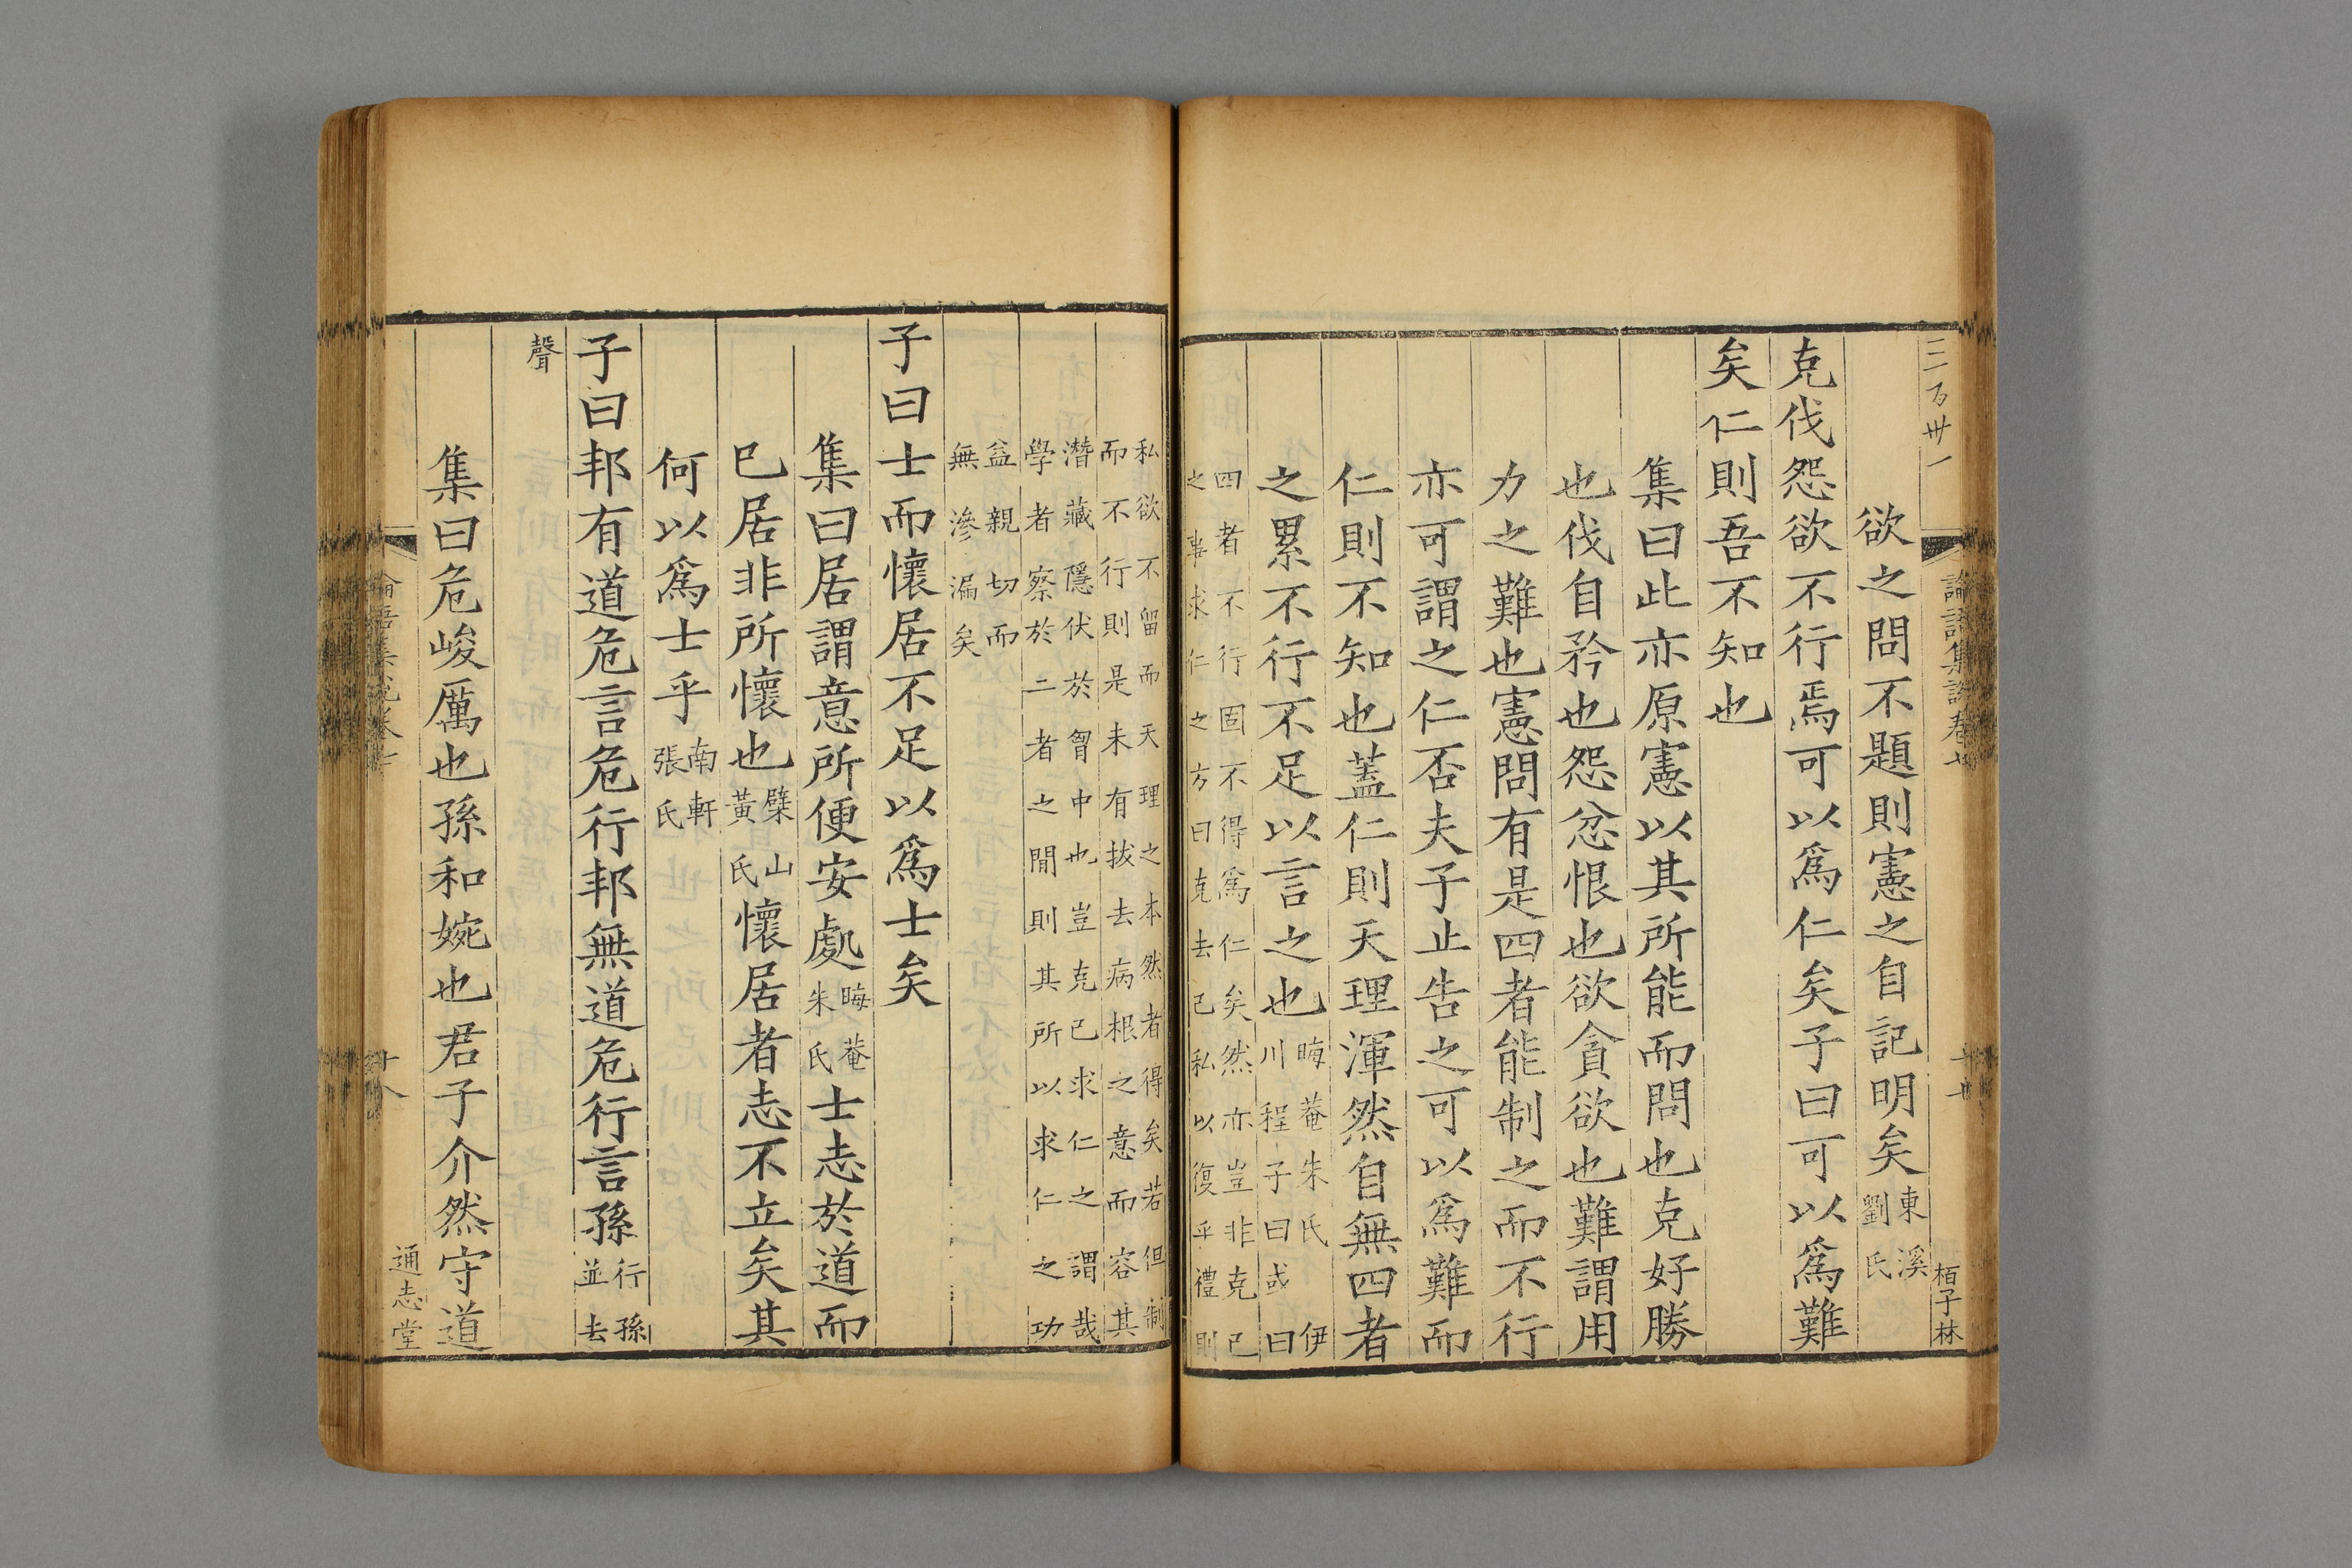 三百卅一
論語集說卷七
十七
栢子林
欲之問不題則憲之自記明矣東溪劉氏
克伐怨欲不行焉可以爲仁矣子曰可以爲難
矣仁則吾不知也
集曰此亦原憲以其所能而問也克好勝
也伐自矜也怨忿恨也欲貪欲也難謂用
力之難也憲問有是四者能制之而不行
亦可謂之仁否夫子止告之可以爲難而
仁則不知也蓋仁則天理渾然自無四者
之累不行不足以言之也晦菴朱氏 伊川程子曰或曰
四者不行固不得爲仁矣然亦豈非克己
之事求仁之方曰克去己私以復乎禮則
私欲不留而天理之本然者得矣若但制
而不行則是未有拔去病根之意而容其
潛藏隱伏於胷中也豈克己求仁之謂哉
學者察於二者之間則其所以求仁之功
益親切而
無滲漏矣
子曰士而懷居不足以爲士矣
集曰居謂意所便安處晦菴朱氏士志於道而
已居非所懷也檗山黃氏懷居者志不立矣其
何以爲士乎南軒張氏
子曰邦有道危言危行邦無道危行言孫行孫並去
聲
集曰危峻厲也孫和婉也君子介然守道
論語集說卷七
十八
通志堂